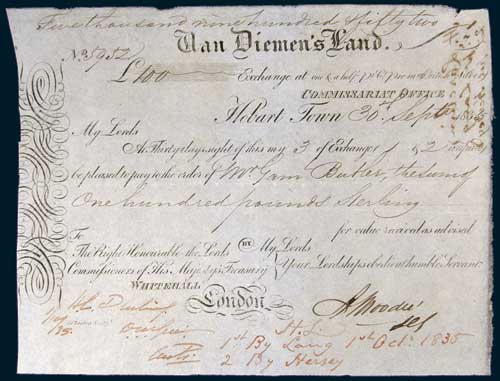 Five thousand nine hundred & fifty two
Van Diemen's Land.
No. 5952
£100 Exchange at one & a half P Ct. Prem
COMMISSARIAT OFFICE
Hobart Town 30th Septr
My Lords
At Thirty days sight of this my 3 of Exchange 1 & 2 unpaid
be pleased to pay to the order of Mr Gam Butler, the sum of
One hundred pounds Sterling
for value received as advised
To
The Right Honourable the Lords BY My Lords
Commissioners of His Majesty's Treasury Your Lordships obedient humble Servant
WHITEHALL
London
A Moodie
H. L.
1st By Lang 1st Octr. 1835
2 By Hersey